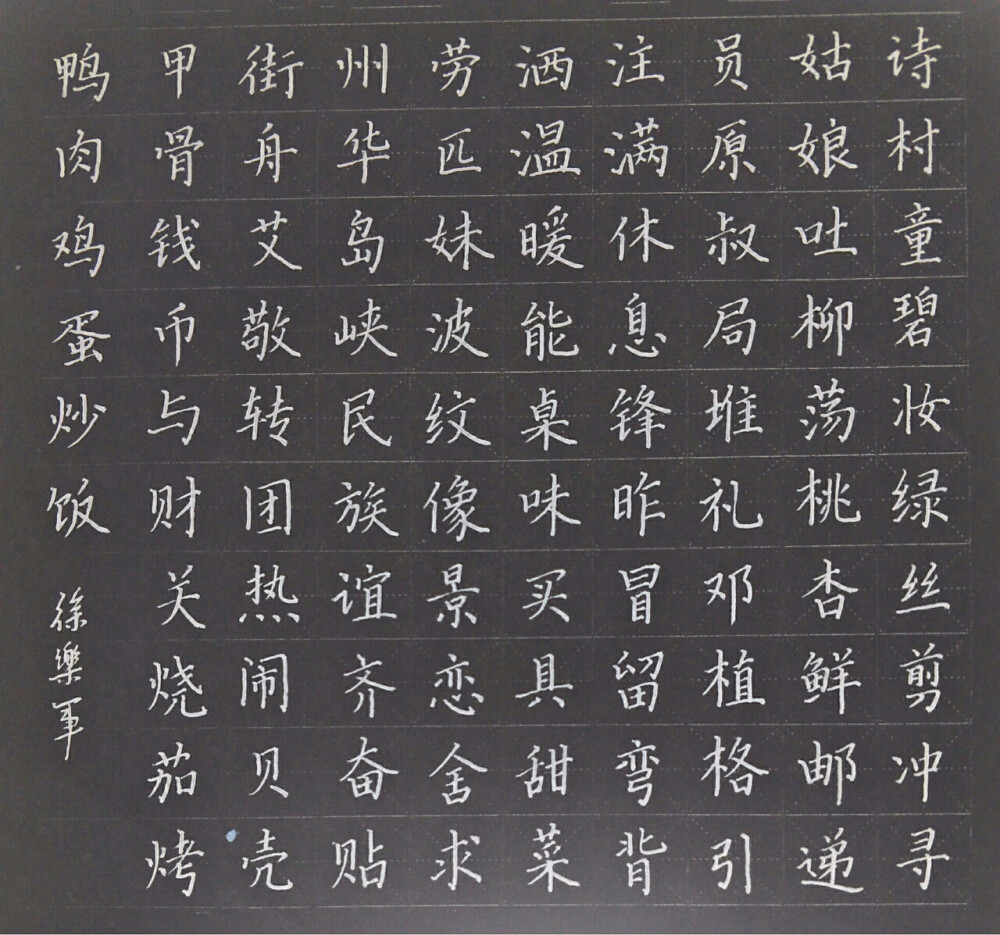 诗村童碧妆绿丝剪冲寻
姑娘吐柳荡桃杏鲜邮递
员原叔局堆礼邓植格引
注满休息锋昨冒留弯背
洒温暖能桌味买具甜菜
劳匹妹波纹像景恋舍求
州华岛峡民族谊齐奋贴
街舟艾敬转团热闹贝壳
甲骨钱币与财关烧茄烤
鸭肉鸡蛋炒饭
徐樂军